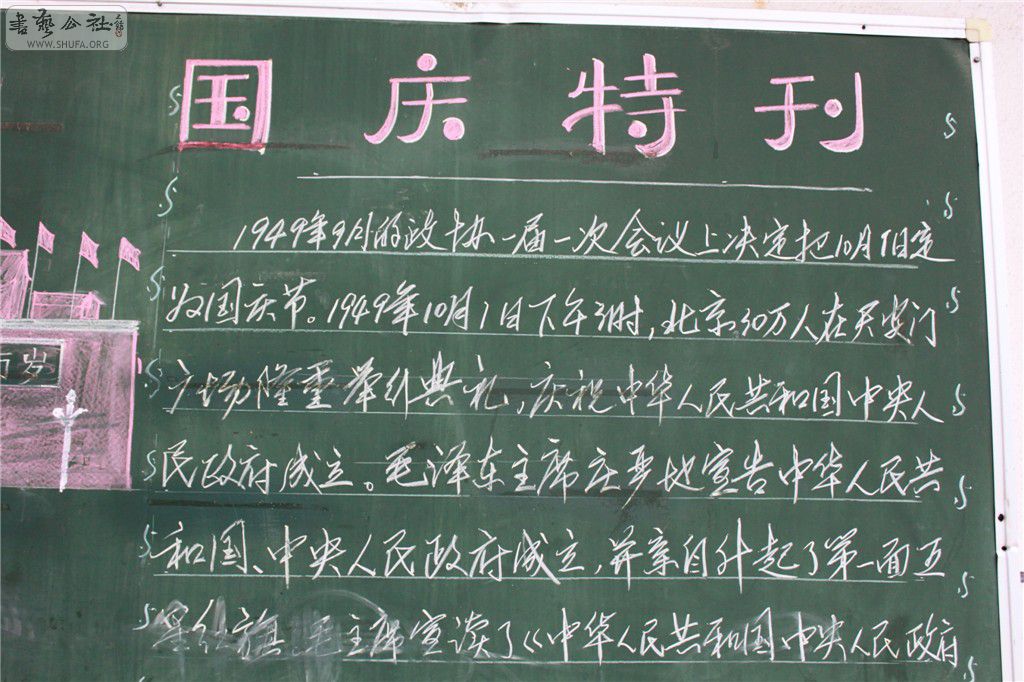 書藝公社
WWW.SHUFA.ORG
国庆特刊
1949年9月的政协一届一次会议上决定把10月1日定
为国庆节。1949年10月1日下午3时,北京30万人在天安门
广场隆重举行典礼,庆祝中华人民共和国中央人
民政府成立。毛泽东主席庄严地宣告中华人民共
和国、中央人民政府成立,并亲自升起了第一面五
星红旗。毛主席宣读了《中华人民共和国中央人民政府
万岁